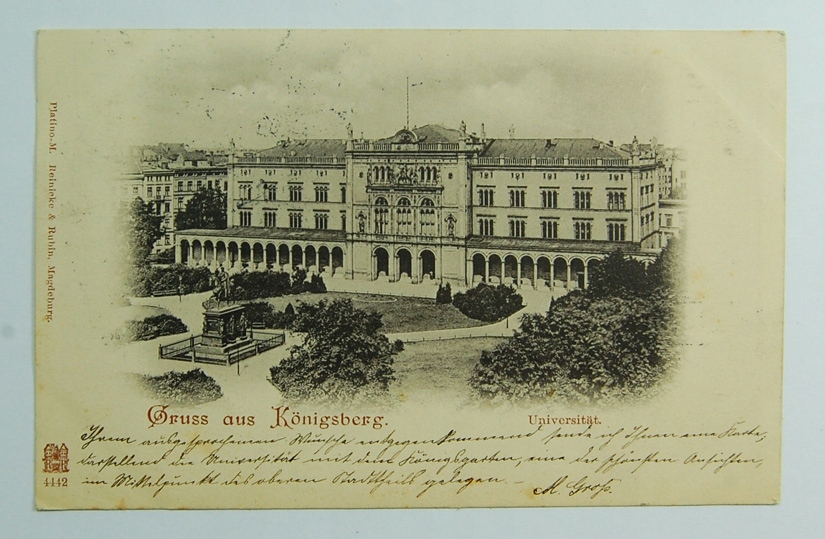 Platino-M. Reinicke & Rubin, Magdeburg.
Gruss aus Königsberg.
Universität.
Ihrem ausgesprochenen Wunsche entgegenkommend sende ich Ihnen eine Karte,
darstellend die Universität mit dem Königsgarten, eine der schönsten Ansichten,
im Mittelpunkt des oberen Stadttheils gelegen. –
M. Groß.
4442